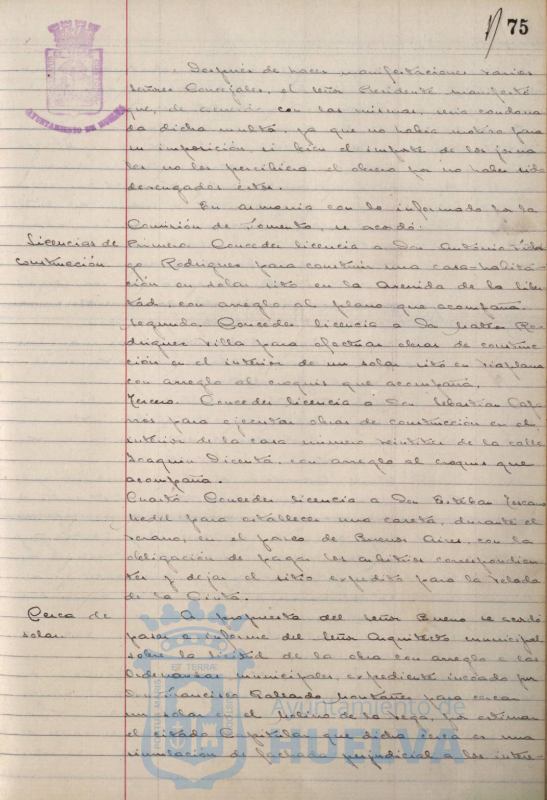 75
AYUNTAMIENTO DE HUELVA
Despues de hacer manifestaciones varios
señores Concejales, el señor Presidente manifestó
que, de acuerdo con las mismas, seria condona
da dicha multa, ya que no habia motivo para
su imposición, si bien el importe de los jorna
les no los percibiera el obrero por no haber sido
devengados estos.
En armonia con lo informado por la
Comisión de Fomento, se acordó:
Licencias de
construcción
Primero. Conceder licencia a Don Antonio
Rodriguez para construir una casa-habita
ción en solar sito en la Avenida de la liber
tad, con arreglo al plano que acompaña.
Segundo. Conceder licencia a Da Ro
driguez Villa para efectuar obras de construc
ción en el interior de un solar sito en
con arreglo al croquis que acompaña.
Tercero. Conceder licencia a Don Sebastian
para ejecutar obras de construcción en el
interior de la casa número veintitres de la calle
Joaquin Dicenta, con arreglo al croquis que
acompaña.
Cuarto. Conceder licencia a Don Esteban Toscano
para establecer una caseta, durante el
verano, en el paseo de Buenos Aires, con la
obligación de pagar los arbitrios correspondien
tes y dejar el sitio expedito para la velada
de la Cinta.
Cerca de
solar
A propuesta del señor Bueno se acordó
pasar a informe del señor Arquitecto municipal
sobre la licitud de la obra con arreglo a las
Ordenanzas municipales, expediente incoado por
Don Francisco Gallardo Montañes para cercar
un solar en el Molino de la Vega, por estimar
el citado Capitular que dicha cerca es una
simulación de fachada perjudicial a los intere-
Ayuntamiento de
HUELVA